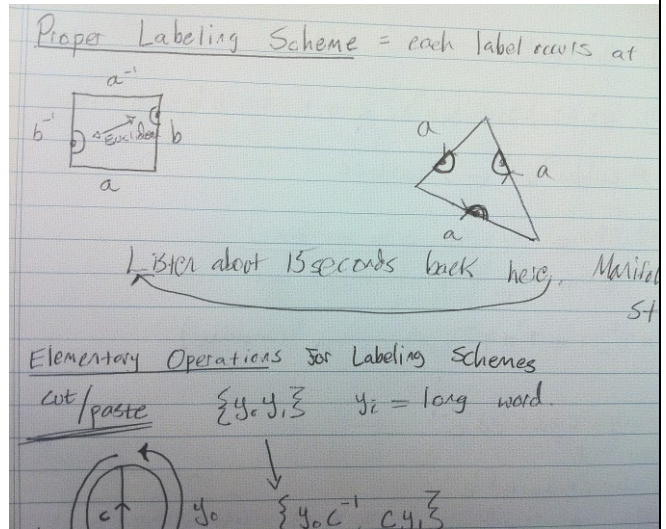 Proper Labeling Scheme = each label occurs at
a⁻¹
b⁻¹ Euclidean b
a
a a
a
Listen about 15 seconds back here,
St
Elementary Operations for Labeling Schemes
cut/paste {y₀y₁} yᵢ = long word.
c y₀ {y₀c⁻¹, cy₁}